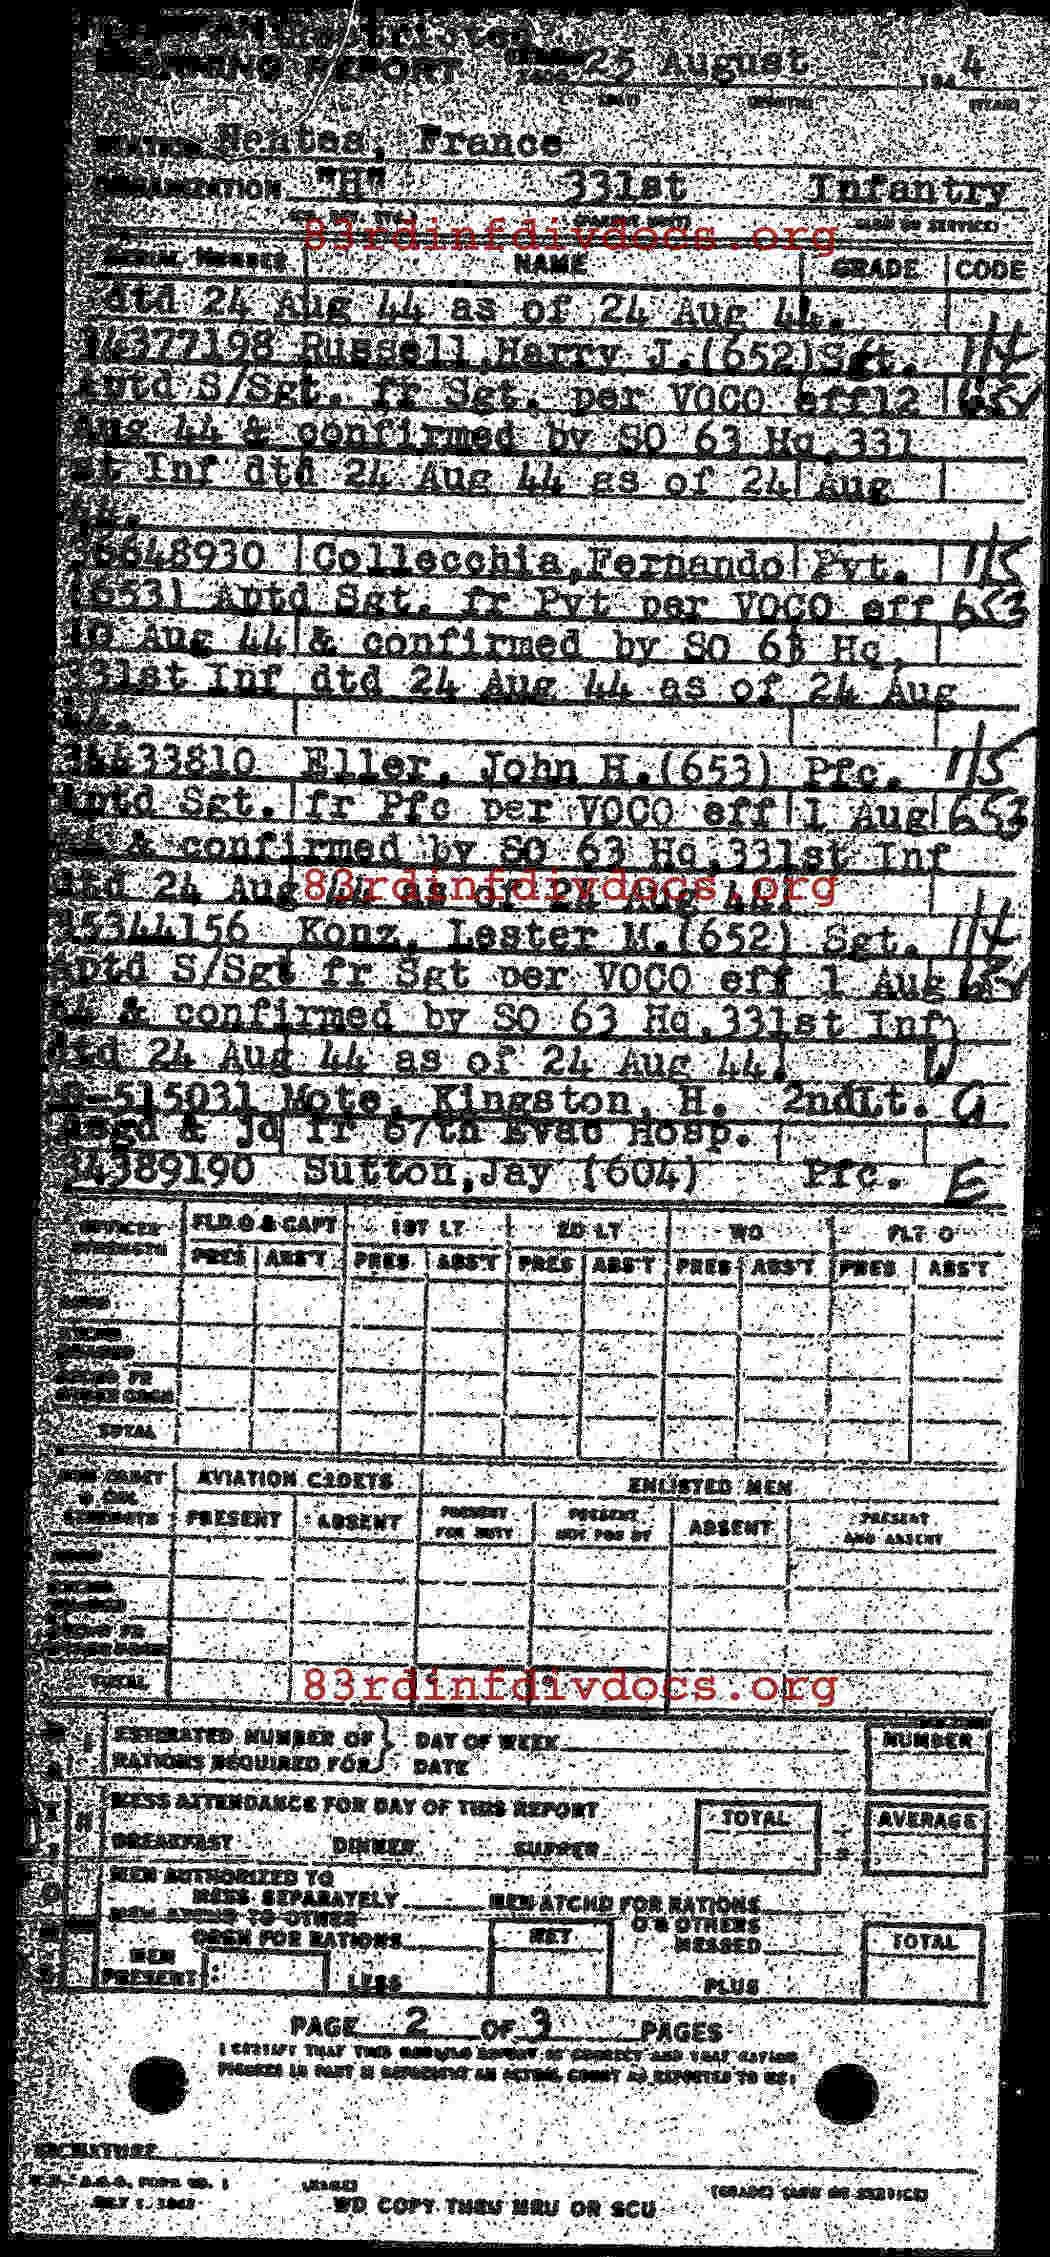 MORNING REPORT 25 August 194 4
(DAY) (MONTH) (YEAR)
France
ORGANIZATION "H" 331st Infantry
83rdinfdivdocs.org
SERIAL NUMBER NAME GRADE CODE
dtd 24 Aug 44 as of 24 Aug 44.
34377198 Russell,Harry J.(652)Sgt. 114
Aptd S/Sgt. fr Sgt. per VOCO eff12
Aug 44 & confirmed by SO 63 Hq,331
st Inf dtd 24 Aug 44 as of 24 Aug
44.
6648930 Collecchia,Fernando Pvt. 115
(653) Aptd Sgt. fr Pvt per VOCO eff 653
Aug 44 & confirmed by SO 63 Hq,
331st Inf dtd 24 Aug 44 as of 24 Aug
44.
34433810 Eller, John H.(653) Pfc. 115
Aptd Sgt. fr Pfc per VOCO eff 1 Aug 653
44 & confirmed by SO 63 Hq,331st Inf
dtd 24 Aug 44 as of 24 Aug 44.
83rdinfdivdocs.org
35344156 Konz, Lester M.(652) Sgt. 114
Aptd S/Sgt fr Sgt per VOCO eff 1 Aug
44 & confirmed by SO 63 Hq,331st Inf
dtd 24 Aug 44 as of 24 Aug 44.
O-515031 Mote, Kingston, H. 2ndLt. G
Asgd & jd fr 67th Evac Hosp.
34389190 Sutton,Jay (604) Pfc. E
OFFICER STRENGTH FLD O & CAPT 1ST LT 2D LT WO FLT O
PRES ABS'T PRES ABS'T PRES ABS'T PRES ABS'T PRES ABS'T
TOTAL
AVIATION CADETS ENLISTED MEN
PRESENT ABSENT PRESENT FOR DUTY PRESENT NOT FOR DY ABSENT PRESENT AND ABSENT
TOTAL
83rdinfdivdocs.org
ESTIMATED NUMBER OF RATIONS REQUIRED FOR } DAY OF WEEK NUMBER
DATE
MESS ATTENDANCE FOR DAY OF THIS REPORT TOTAL AVERAGE
BREAKFAST DINNER SUPPER
MEN AUTHORIZED TO
MESS SEPARATELY MEN ATCHD FOR RATIONS
MEN ATCHD TO OTHER O & OTHERS
ORGN FOR RATIONS NET MESSED TOTAL
MEN PRESENT LESS PLUS
PAGE 2 OF 3 PAGES
I CERTIFY THAT THIS MORNING REPORT IS CORRECT AND THAT RATION
FIGURES IN PART II REPRESENT AN ACTUAL COUNT AS REPORTED TO ME:
SIGNATURE
(NAME) (GRADE) (ARM OR SERVICE)
W.D., A.G.O. FORM NO. 1
WD COPY THRU MRU OR SCU